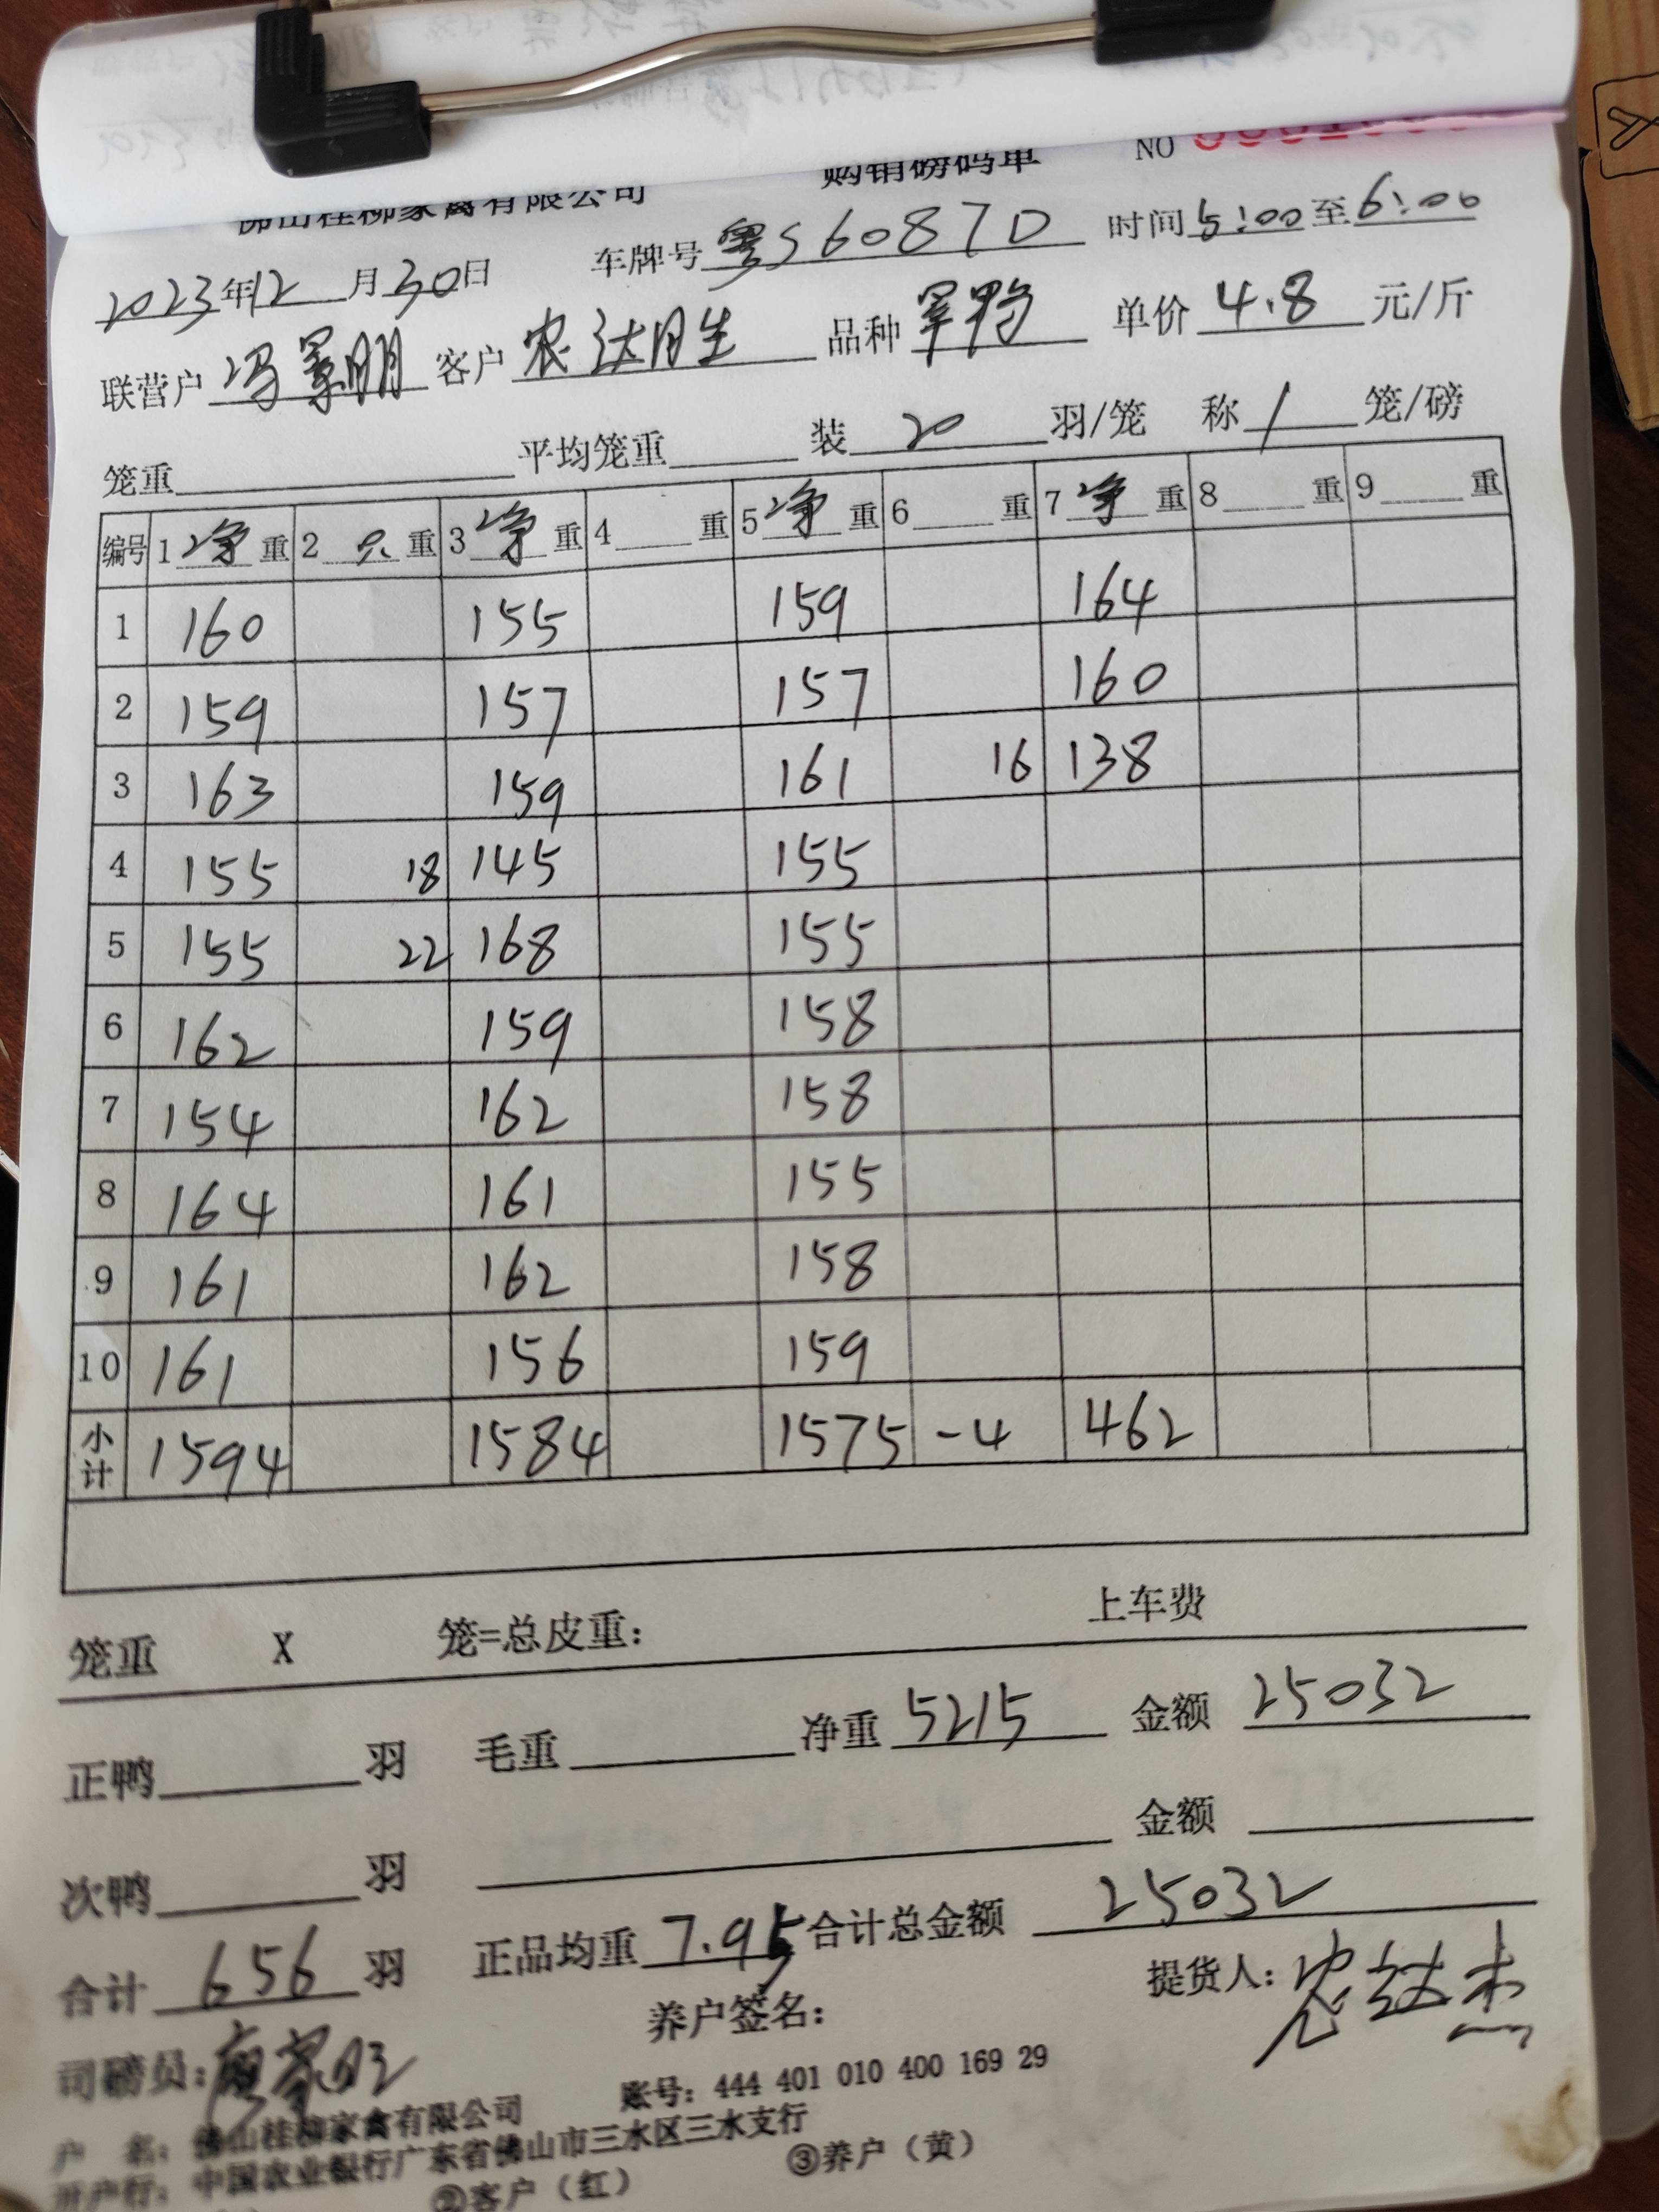 购销磅码单 NO
佛山桂柳家禽有限公司
2023年12月30日 车牌号 粤S6087D 时间 5:00 至 6:00
联营户 冯 明 客户 农达胜 品种 鸭 单价 4.8 元/斤
笼重 平均笼重 装 20 羽/笼 称 1 笼/磅
编号 1 净 重 2 只 重 3 净 重 4 重 5 净 重 6 重 7 净 重 8 重 9 重
1 160 155 159 164
2 159 157 157 160
3 163 159 161 16 138
4 155 18 145 155
5 155 22 168 155
6 162 159 158
7 154 162 158
8 164 161 155
9 161 162 158
10 161 156 159
小计 1594 1584 1575 -4 462
笼重 X 笼=总皮重： 上车费
正鸭 羽 毛重 净重 5215 金额 25032
次鸭 羽 金额
合计 656 羽 正品均重 7.95 合计总金额 25032
司磅员： 养户签名： 提货人：
户 名：佛山桂柳家禽有限公司 账号：444 401 010 400 169 29
开户行：中国农业银行广东省佛山市三水区三水支行
②客户（红） ③养户（黄）